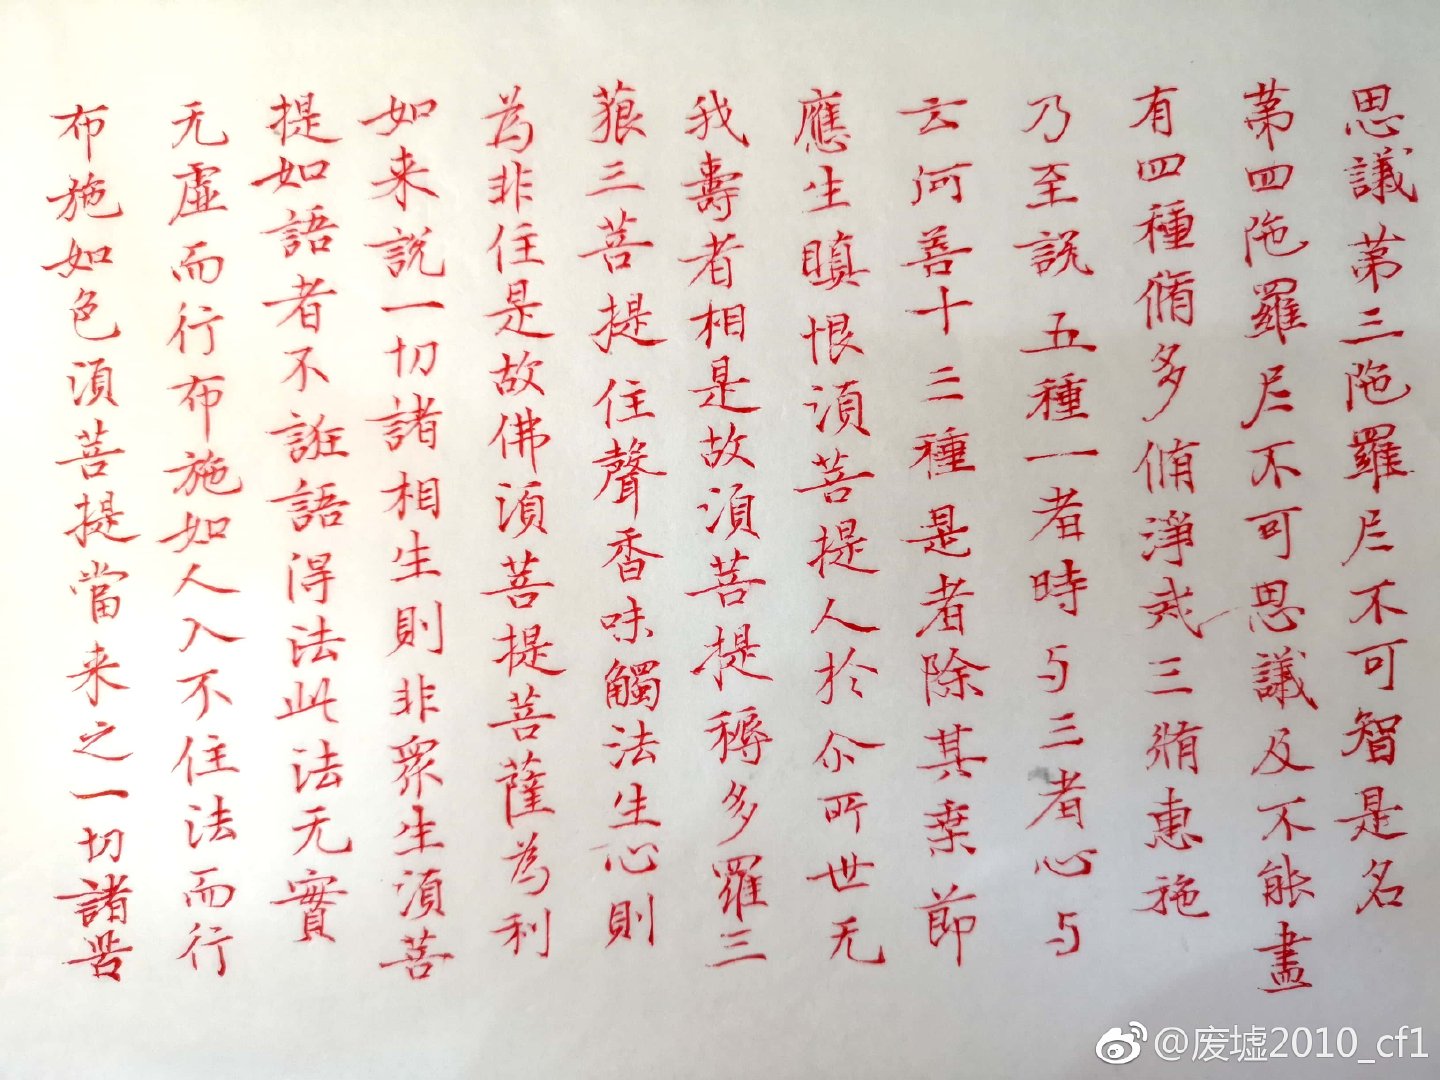 思議第三陁羅尼不可智是名
第四陁羅尼不可思議及不能盡
有四種脩多脩淨戒三惠施
乃至說五種一者時与三者心与
云何善十二種是者除其棄節
應生瞋恨須菩提人於尒所世无
我壽者相是故須菩提耨多羅三
藐三菩提住聲香味觸法生心則
為非住是故佛須菩提菩薩為利
如来說一切諸相生則非眾生須菩
提如語者不誑語得法此法无實
无虛而行布施如人入不住法而行
布施如色須菩提當来之一切諸
@废墟2010_cf1